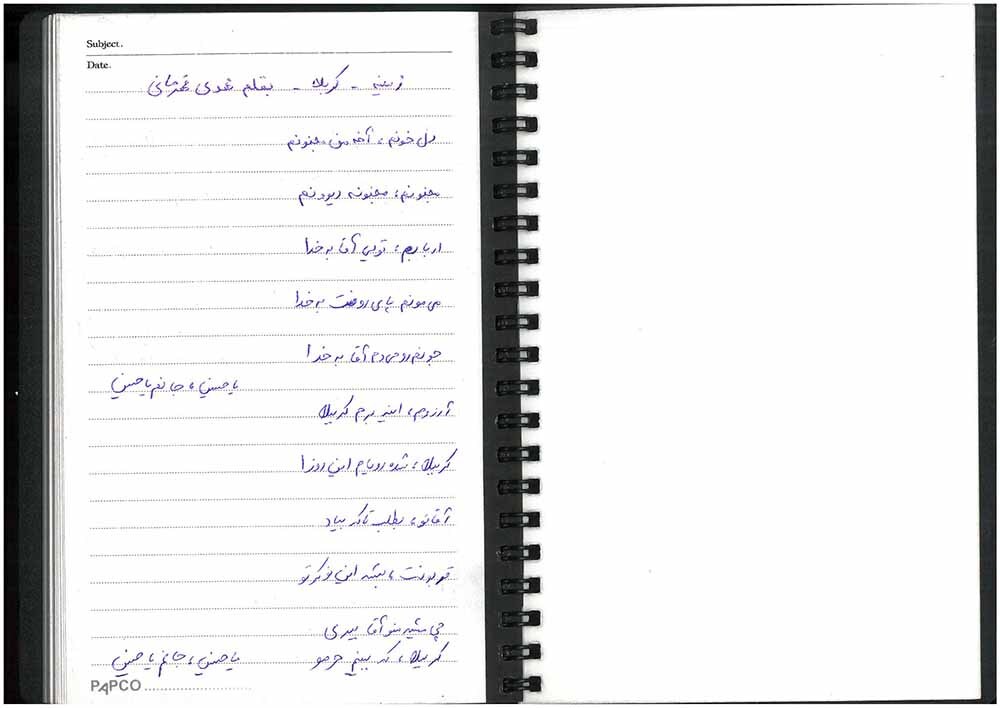 Subject.
Date.
زمینه - کربلا - بقلم مهدی قهرمانی
دل خونم، آخه من مجنونم
مجنونم، مجنونه دیوونم
اربابم، تویی آقا به خدا
می مونم پای روضت به خدا
جونم رو می دم آقا به خدا
یا حسین، جانم یا حسین
آرزوم، اینه برم کربلا
کربلا، شده رویام این روزا
آقا نو، بطلب تا که بیاد
قربونت، بشه این نوکر تو
چی میشه منو آقا ببری
کربلا، که ببینم حرمو
یا حسین، جانم یا حسین
PAPCO